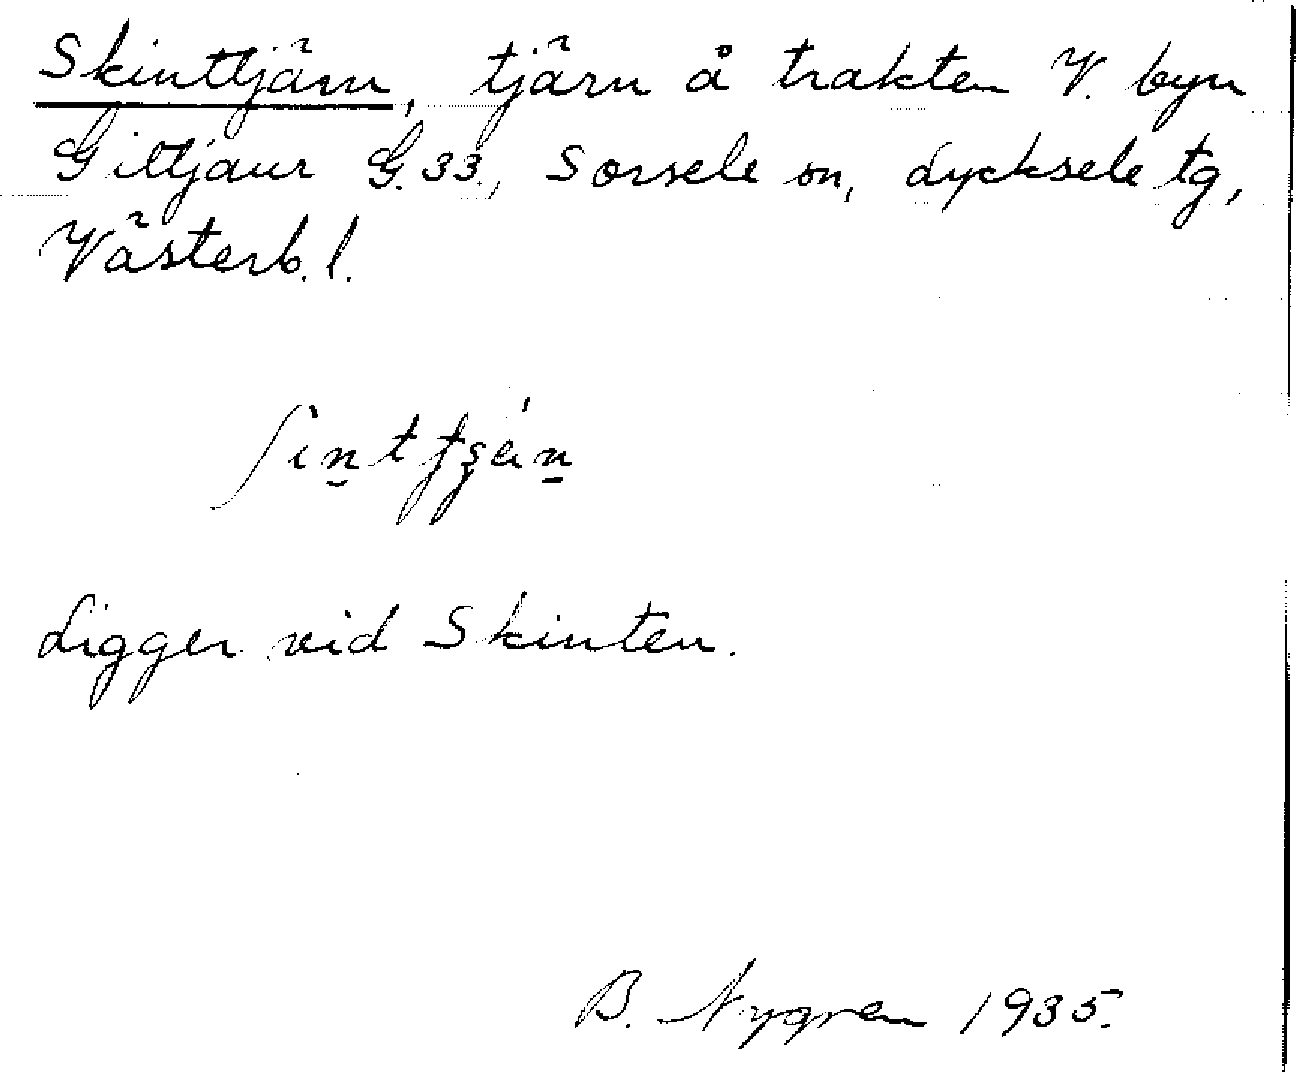 Skinttjärn, tjärn å trakten V. byn
Gittjaur G.33., Sorsele sn, Lycksele tg,
Västerb. l.
Ligger vid Skinten.
B. Nygren 1935.